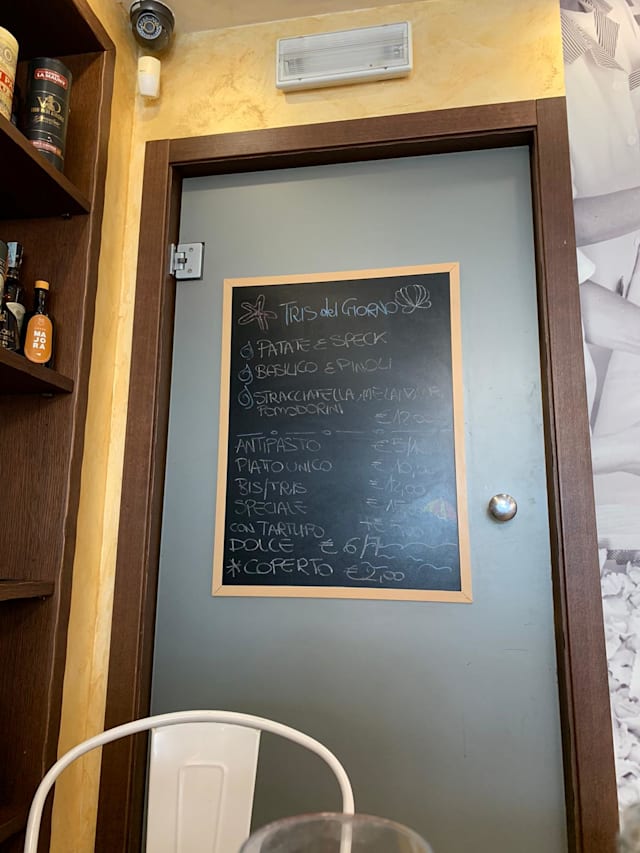 TRIS del GIORNO
PATATE E SPECK
BASILICO E PINOLI
STRACCIATELLA, MELANZANE,
POMODORINI €12,00
ANTIPASTO €5/10
PIATTO UNICO €10,00
BIS/TRIS €12,00
SPECIALE €15,00
CON TARTUFO +€5,00
DOLCE € 6/7
*COPERTO €2,00
MAJORA